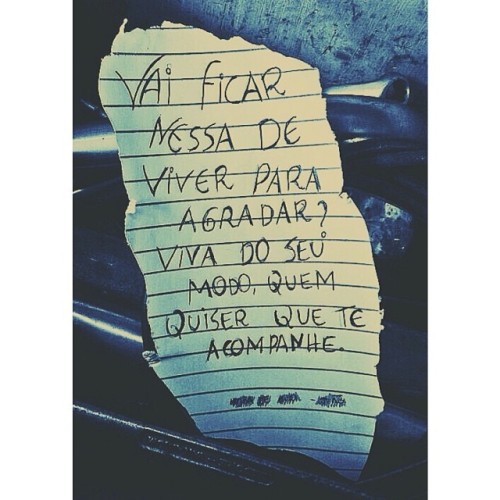 VAi FiCAR
NESSA DE
ViVER PARA
AGRADAR?
VIVA DO SEU
MODO, QUEM
QUISER QUE TE
ACOMPANHE.